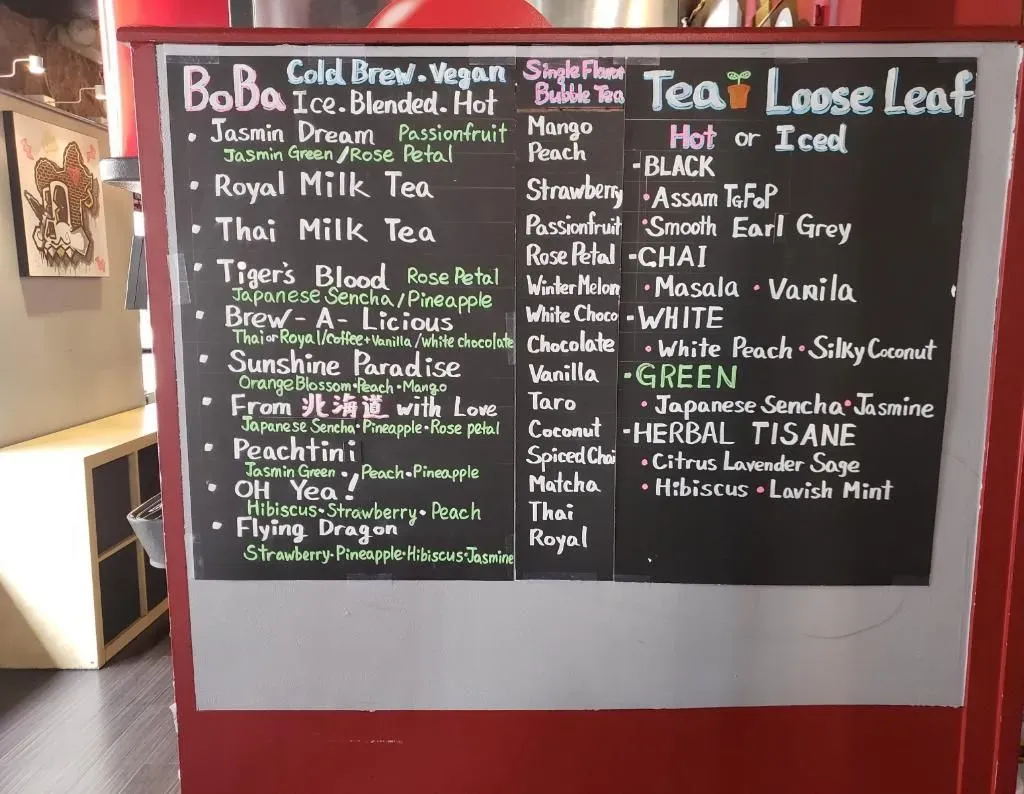 BoBa Cold Brew. Vegan
Ice. Blended. Hot
• Jasmin Dream Passionfruit
Jasmin Green / Rose Petal
• Royal Milk Tea
• Thai Milk Tea
• Tiger's Blood Rose Petal
Japanese Sencha / Pineapple
• Brew-A-Licious
Thai or Royal/coffee+Vanilla/white chocolate
• Sunshine Paradise
Orange Blossom•Peach•Mango
• From 北海道 with Love
Japanese Sencha•Pineapple•Rose petal
• Peachtini
Jasmin Green•Peach•Pineapple
• OH Yea!
Hibiscus•Strawberry•Peach
• Flying Dragon
Strawberry•Pineapple•Hibiscus•Jasmine
Single Flavor
Bubble Tea
Mango
Peach
Strawberry
Passionfruit
Rose Petal
Winter Melon
White Choco
Chocolate
Vanilla
Taro
Coconut
Spiced Chai
Matcha
Thai
Royal
Tea Loose Leaf
Hot or Iced
-BLACK
•Assam TGFOP
•Smooth Earl Grey
-CHAI
•Masala •Vanila
-WHITE
•White Peach •Silky Coconut
-GREEN
•Japanese Sencha •Jasmine
-HERBAL TISANE
•Citrus Lavender Sage
•Hibiscus •Lavish Mint